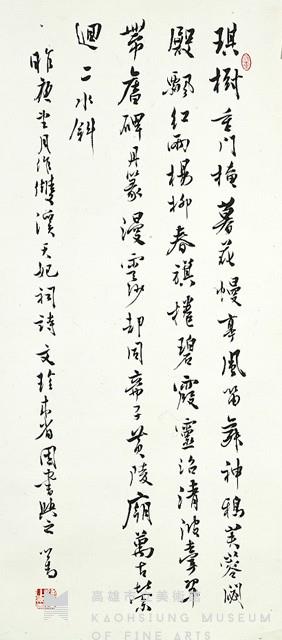 琪樹重門掩暮花幔亭風笛舞神鴉芙蓉闕
殿飄紅雨楊柳春旗捲碧霞靈沼清波牽翠
帶舊碑丹篆漫雲沙却同帝子黃陵廟萬古縈
迴二水斜
昨夜坐月作雙溪天妃祠詩文珍來省因書與之 心畬
高雄市立美術館
KAOHSIUNG MUSEUM
OF FINE ARTS